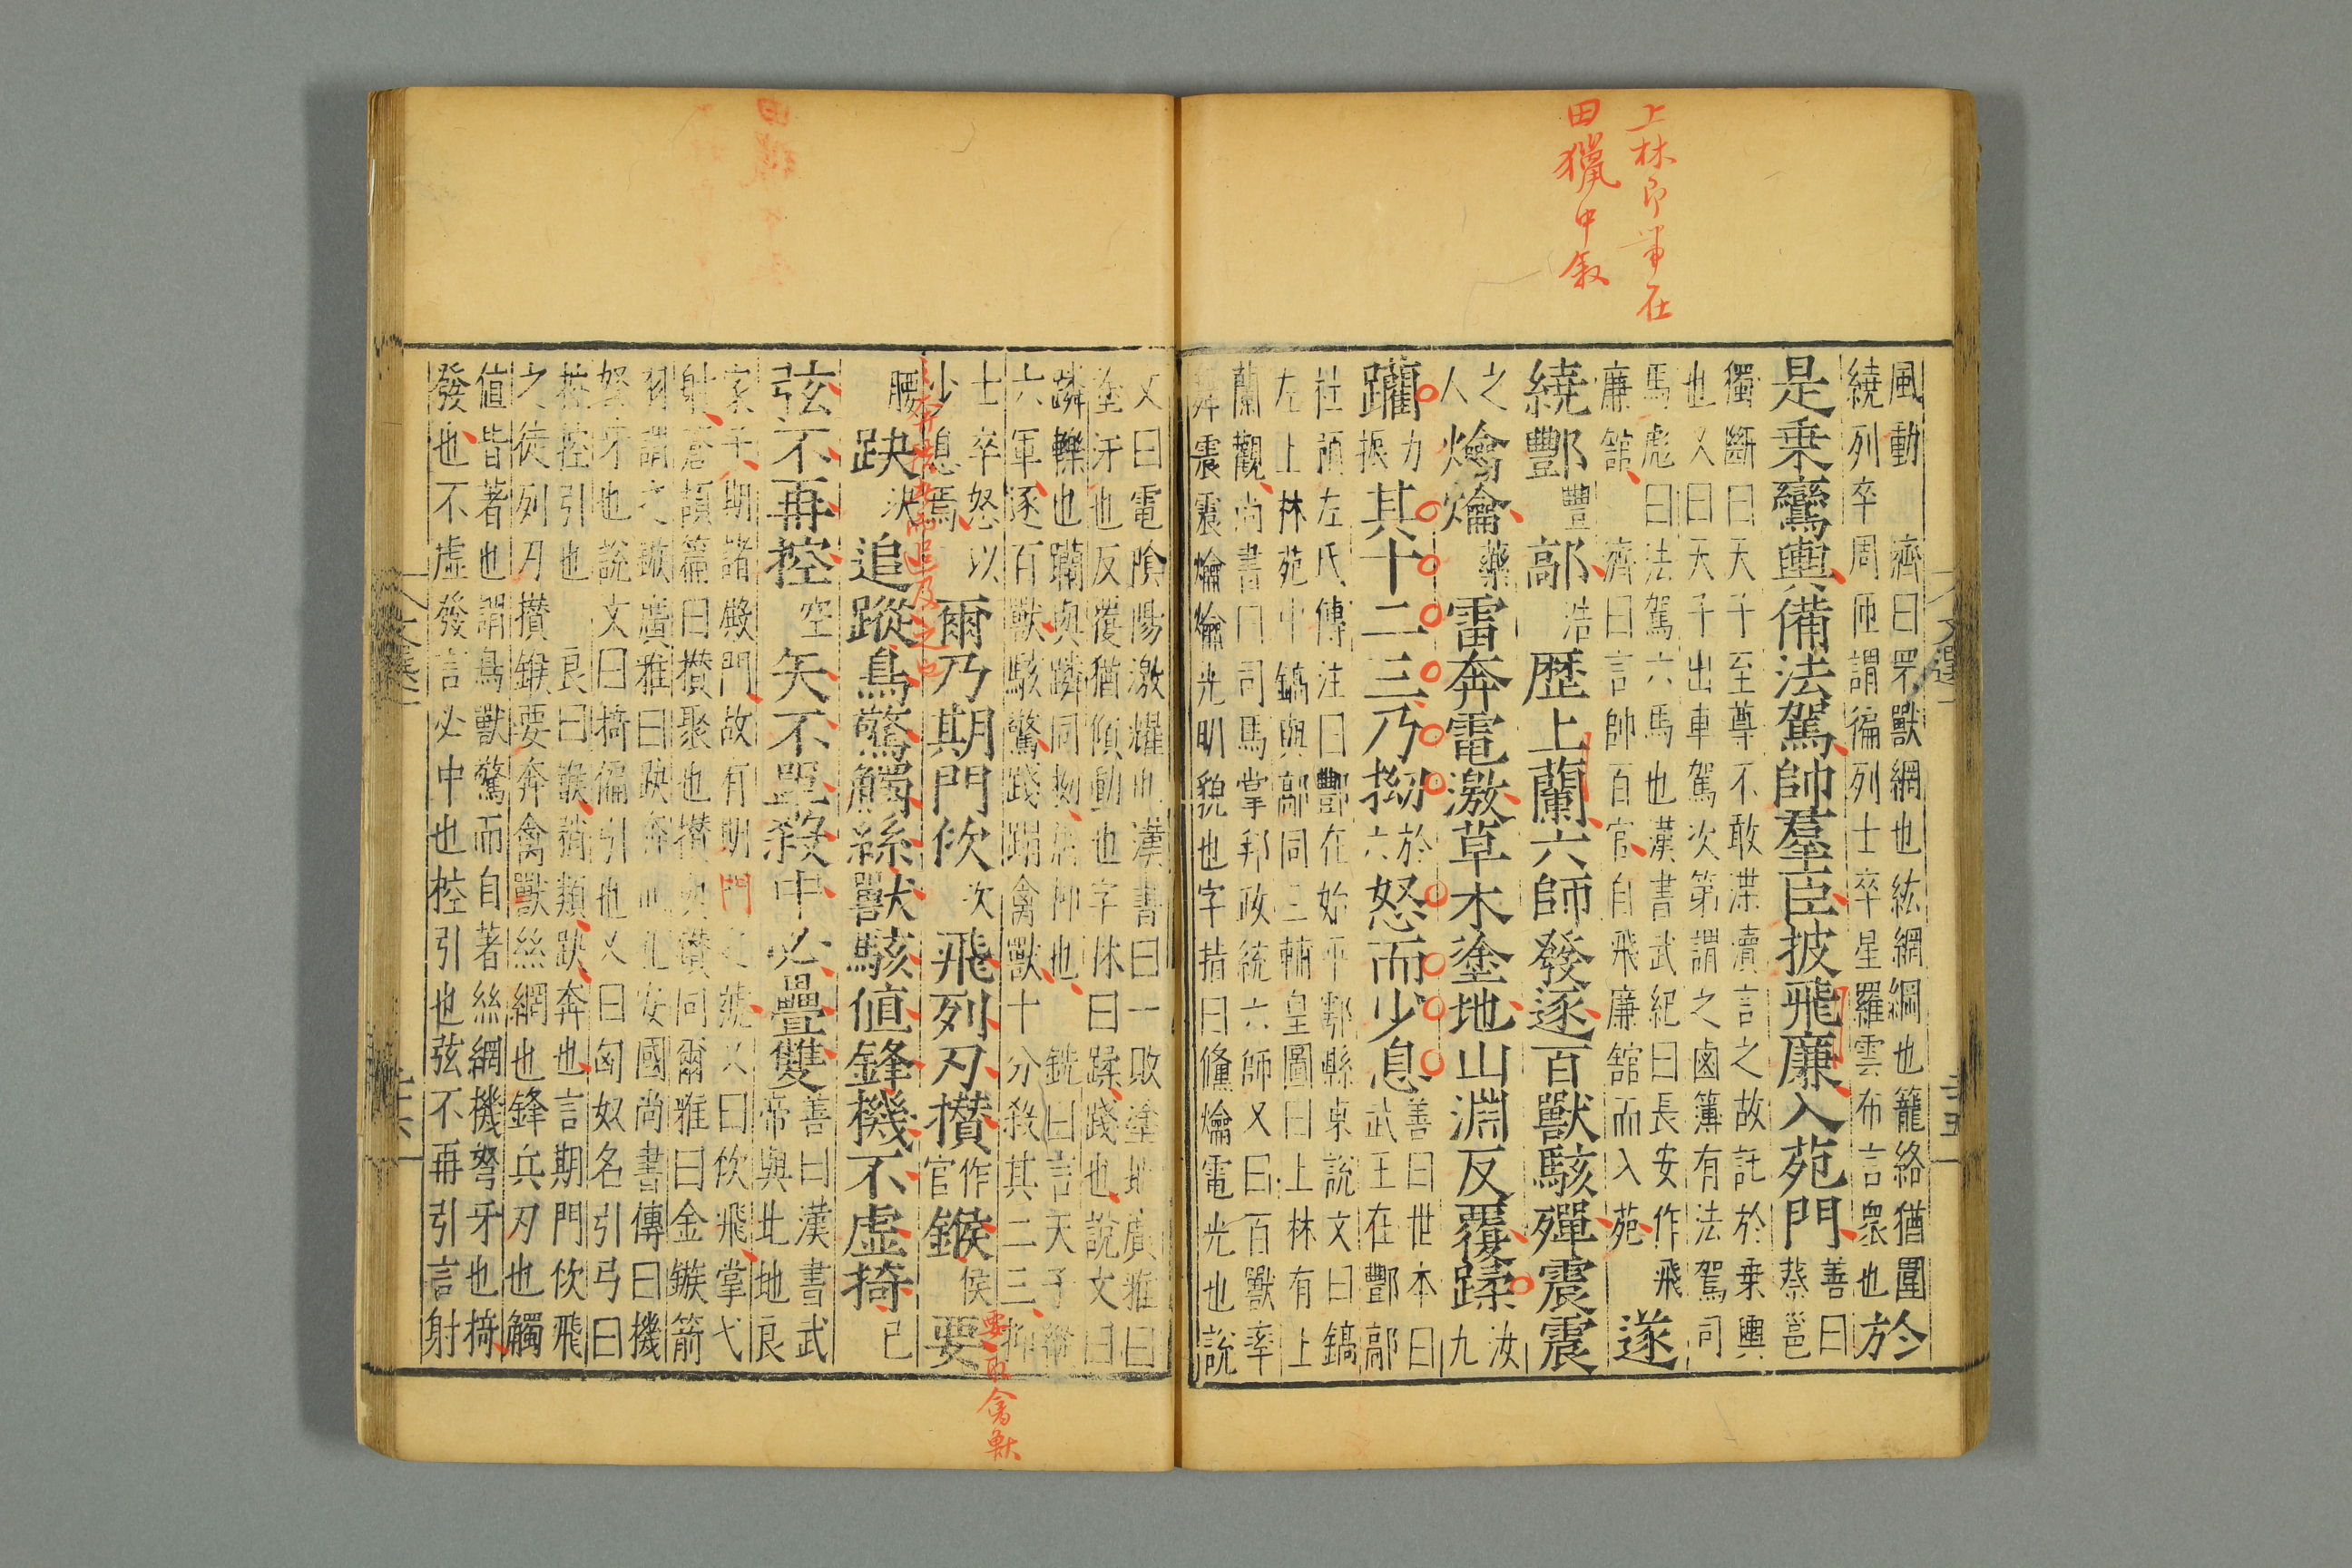 上林即事在
田獵中敘
風動濟曰罘獸網也紘網綱也籠絡猶圍
繞列卒周匝謂徧列士卒星羅雲布言衆也
於
是乗鸞輿備法駕帥羣臣披飛廉入苑門
善曰
蔡邕
獨斷曰天子至尊不敢渫瀆言之故託於乗輿
也又曰天子出車駕次第謂之鹵簿有法駕司
馬彪曰法駕六馬也漢書武紀曰長安作飛
廉館濟曰言帥百官自飛廉館而入苑
遂
繞酆豐鄗浩歷上蘭六師發逐百獸駭殫震震
之
人
爚爚藥雷奔電激草木塗地山淵反覆蹂
汝
九
躪
力
振
其十二三乃拗
於
六
怒而少息
善曰世本曰
武王在酆鄗
杜預左氏傳注曰酆在始平鄠縣東說文曰鎬
在上林苑中鎬與鄗同三輔皇圖曰上林有上
蘭觀尚書曰司馬掌邦政統六師又曰百獸率
舞震震爚爚光明貌也字指曰儵爚電光也說
文選
二十五
文曰電陰陽激耀也漢書曰一敗塗地廣雅曰
塗汙也反覆猶傾動也字林曰蹂踐也說文曰
蹸轢也躪與蹸同拗猶抑也銑曰言天子帥
六軍逐百獸駭驚踐蹋禽獸十分殺其二三抑
士卒怒以
少息焉
爾乃期門佽次飛列刃攅
作
官
鍭侯要
腰
趹決追蹤鳥驚觸絲獸駭値鋒機不虚掎己
弦不再控空矢不單殺中必疊雙
善曰漢書武
帝與北地良
家子期諸殿門故有期門之號又曰佽飛掌弋
射蒼頡篇曰攢聚也攅與鑽同爾雅曰金鏃箭
羽謂之鍭廣雅曰趹奔也孔安國尚書傳曰機
弩牙也說文曰掎偏引也又曰匈奴名引弓曰
控控引也良曰鍭箭類趹奔也言期門佽飛
之徒列刃攅鍭要奔禽獸絲網也鋒兵刃也觸
値皆著也謂鳥獸驚而自著絲網機弩牙也掎
發也不虚發言必中也控引也弦不再引言射
要取禽獸
文選
二十六